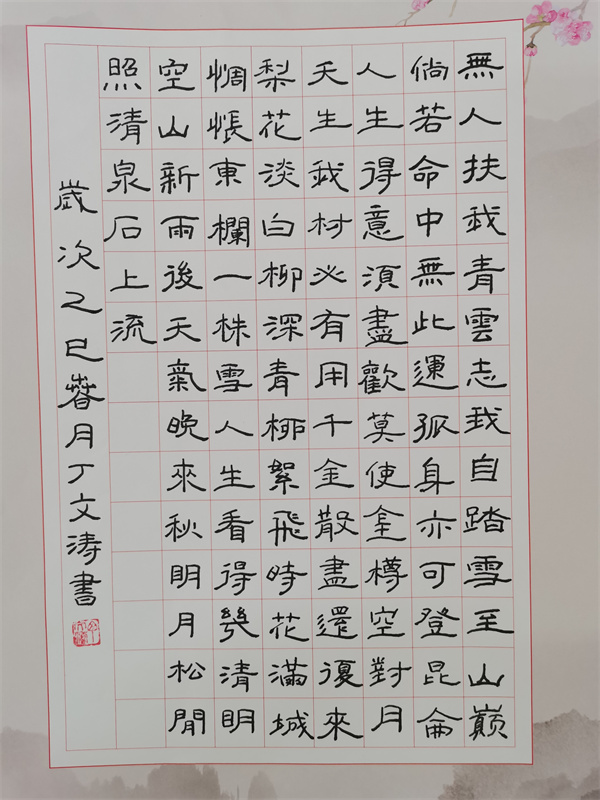 無人扶我青雲志我自踏雪至山巔
倘若命中無此運孤身亦可登昆侖
人生得意須盡歡莫使金樽空對月
天生我材必有用千金散盡還復來
梨花淡白柳深青柳絮飛時花滿城
惆悵東欄一株雪人生看得幾清明
空山新雨後天氣晚來秋明月松間
照清泉石上流
歲次乙巳春月丁文涛書